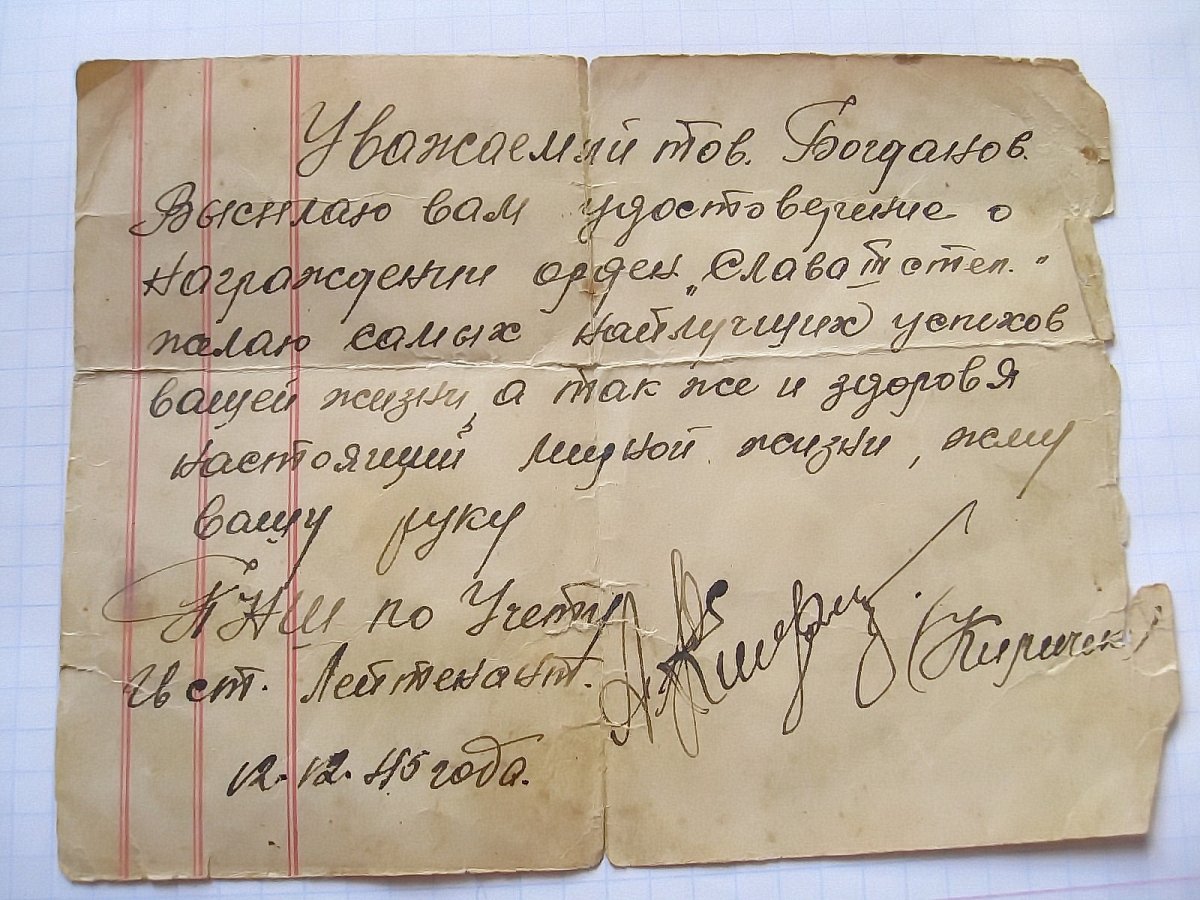 Уважаемый тов. Богданов.
Высилаю вам удостоверение о
награждении орден „Слава III степ."
желаю самых найлучших успехов
вашей жизни, а так же и здоровя
настоящий мирной жизни, жму
вашу руку
ПНШ по Учету
Гв ст. Лейтенант. (Киричек)
12.12.45 года.